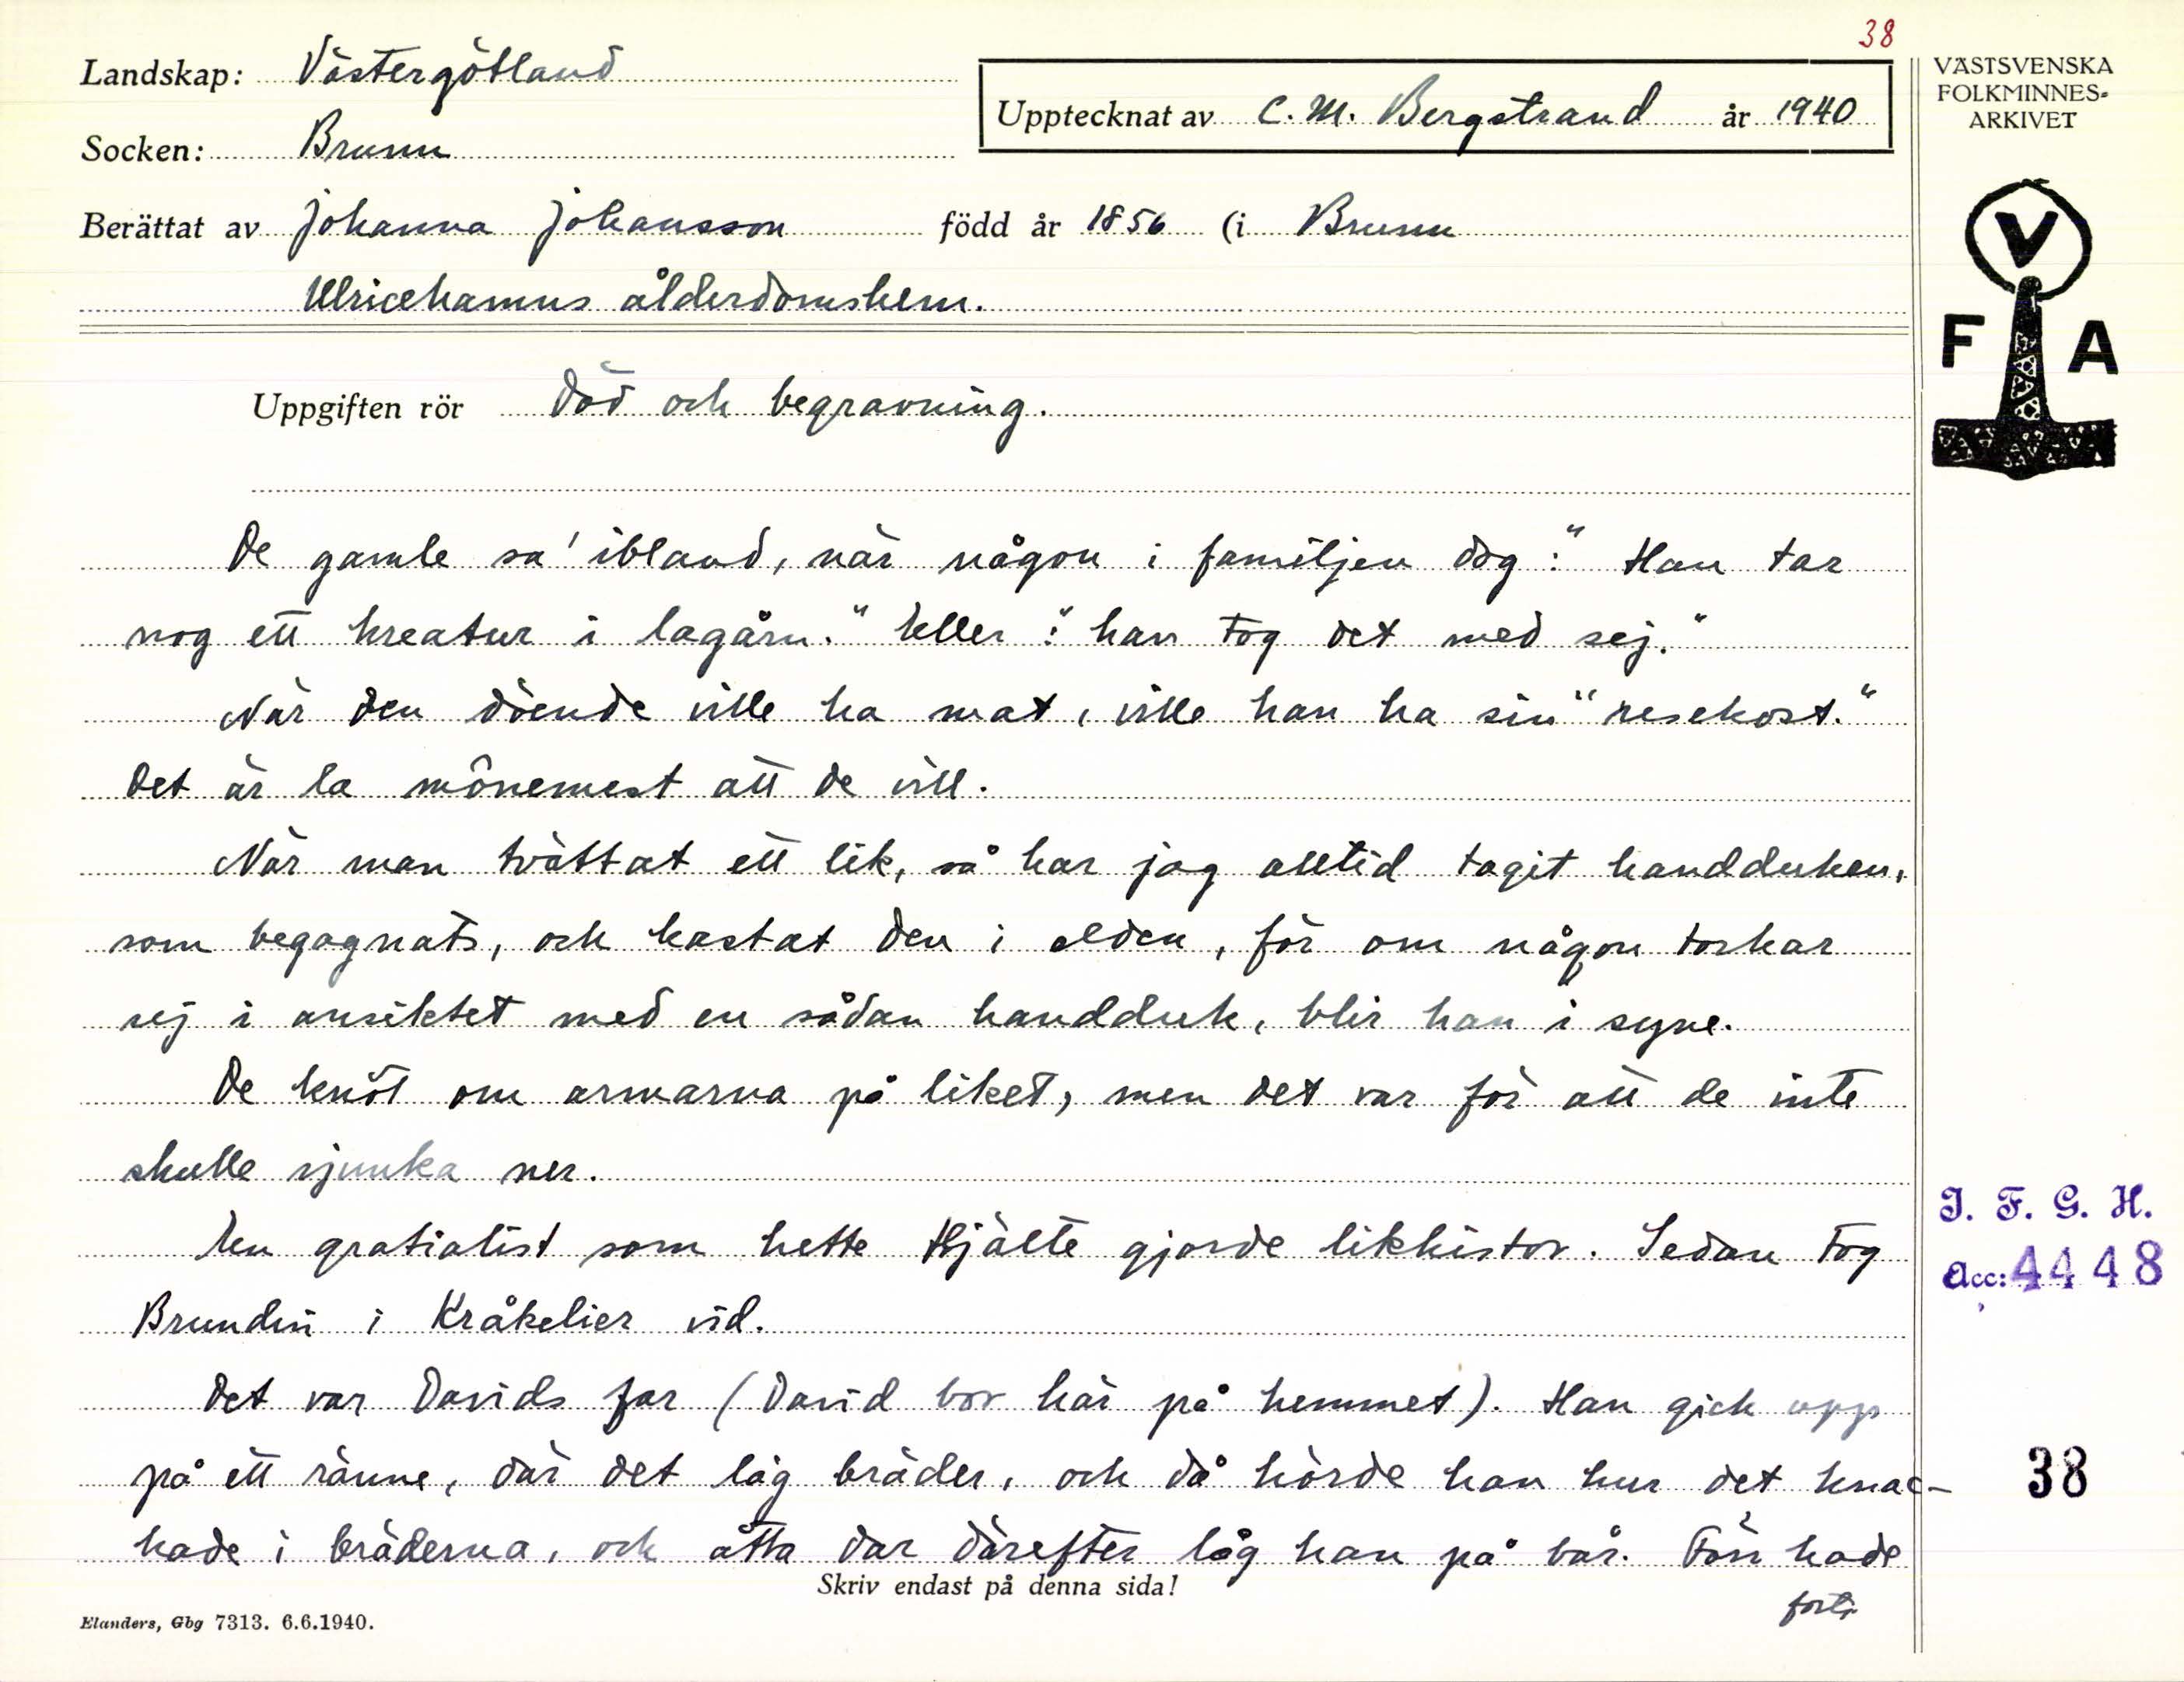 38
Landskap: Västergötland
Upptecknat av C. M. Bergstrand år 1940
Socken: Brunn
Berättat av Johanna Johansson född år 1856 (i Brunn
Ulricehamns ålderdomshem.
VÄSTSVENSKA
FOLKMINNES-
ARKIVET
V
F A
Uppgiften rör Död och begravning.
De gamle sa' ibland, när någon i familjen dog: "Han tar
nog ett kreatur i lagårn." Eller: "han tog det med sej."
När den döende ville ha mat, ville han ha sin "resekost."
Det är la mônemest att de vill.
När man tvättat ett lik, så har jag alltid tagit handduken,
som begagnats, och kastat den i elden, för om någon torkar
sej i ansiktet med en sådan handduk, blir han i syne.
De knöt om armarna på liket, men det var för att de inte
skulle sjunka ner.
En gratialist som hette Hjälte gjorde likkistor. Sedan tog
Brundin i Kråkelier vid.
Det var Davids far (David bor här på hemmet). Han gick upp
på ett ränne, där det låg bräder, och då hörde han hur det knac-
kade i bräderna, och åtta dar därefter låg han på bår. Förr hade
forts
Skriv endast på denna sida!
Elanders, Gbg 7313. 6.6.1940.
I. F. G. H.
Acc: 4448
38